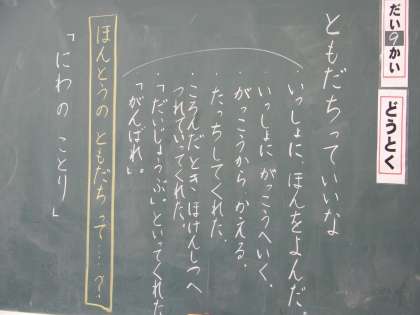 だい9かい
どうとく
ともだちっていいな
・いっしょに、ほんをよんだ。
・いっしょに がっこうへいく。
・がっこうから かえる。
・たっちしてくれた。
・ころんだとき ほけんしつへ
つれていてくれた。
・「だいじょうぶ。」といってくれた
「がんばれ。」
ほんとうの ともだちって…?
「にわの ことり」